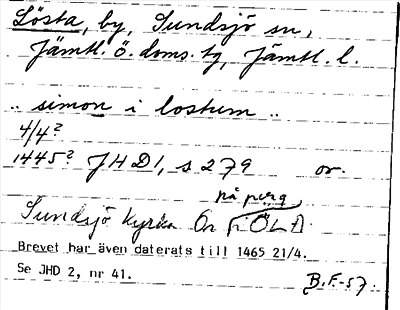 Lösta, by, Sundsjö sn,
Jämtl. ö. doms. tg, Jämtl. l.
.. simon i lostum ..
4/4?
1445? JHD 1, s 279 or.
på perg
Sundsjö kyrka Or i ÖLA
Brevet har även daterats till 1465 21/4.
Se JHD 2, nr 41.
B.F.-57.